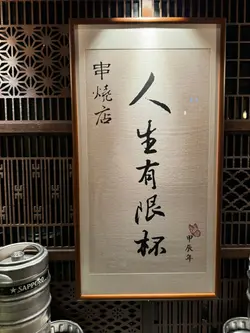 串燒店
人生有限杯
甲辰年
SAPPORO